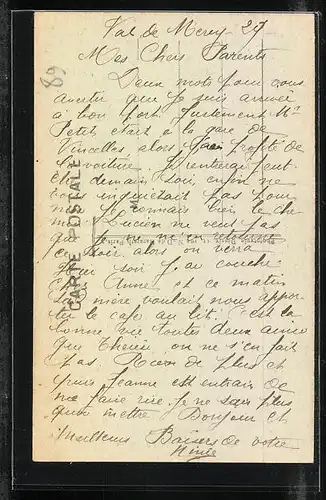 Val de Mercy 27
Mes Chers Parents
Deux mots pour vous
avertir que je suis arrivée
à bon port. Justement Mr
Petit était à la gare de
Vincelles alors j'ai profité de
sa voiture. Je rentrerai peut
être demain soir, enfin ne
vous inquiétait pas pour
moi je connais bien le che
min. Lucien ne veut pas
que
ce soir alors on verra
Hier soir j'ai couché
chez Anne et ce matin
sa mère voulait nous appor
ter le café au lit. C'est la
bonne vie toutes deux aussi
que Thérèse on ne s'en fait
pas. Rien de plus et
puis Jeanne est entrain de
me faire rire je ne sais plus
quoi mettre Bonjour et
Meilleurs Baisers de votre
Ninie
CARTE POSTALE
89